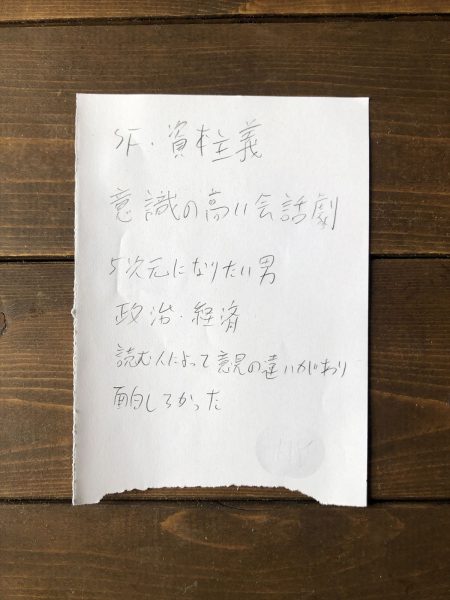 SF・資本主義
意識の高い会話劇
5次元になりたい男
政治・経済
読む人によって意見の違いがあり
面白しろかった